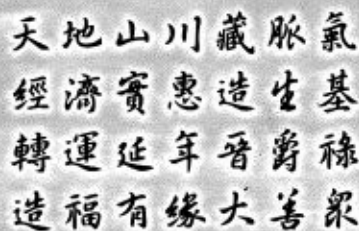 天地山川藏脈氣
經濟實惠造生基
轉運延年晉爵祿
造福有缘大善眾